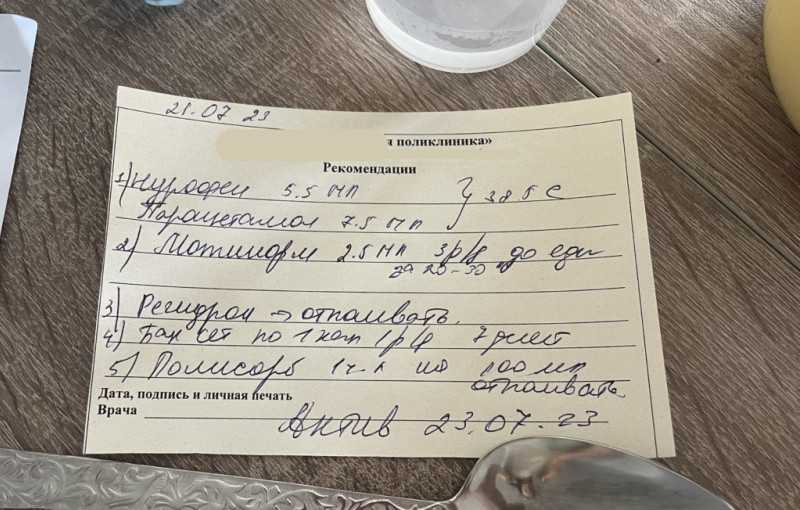 21.07 23
я поликлиника»
Рекомендации
1) Нурофен 5.5 мл } 38.5 С
Парацетамол 7.5 мл
2) Мотинорм 2.5 мл 3р/д до еды
за 20-30
3) Регидрон → отпаивать.
4) Бак сет по 1 кап 1р/д 7 дней
5) Полисорб 1 ч.л на 100 мл
отпаивать
Дата, подпись и личная печать
Врача
Актив 23.07.23